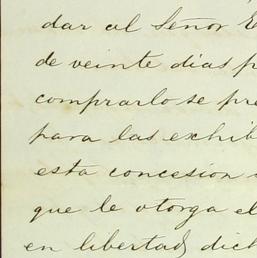 dar al Señor E
de veinte días p
comprarlo se pre
para las exhib
esta concesion
que le otorga el
en libertad dich